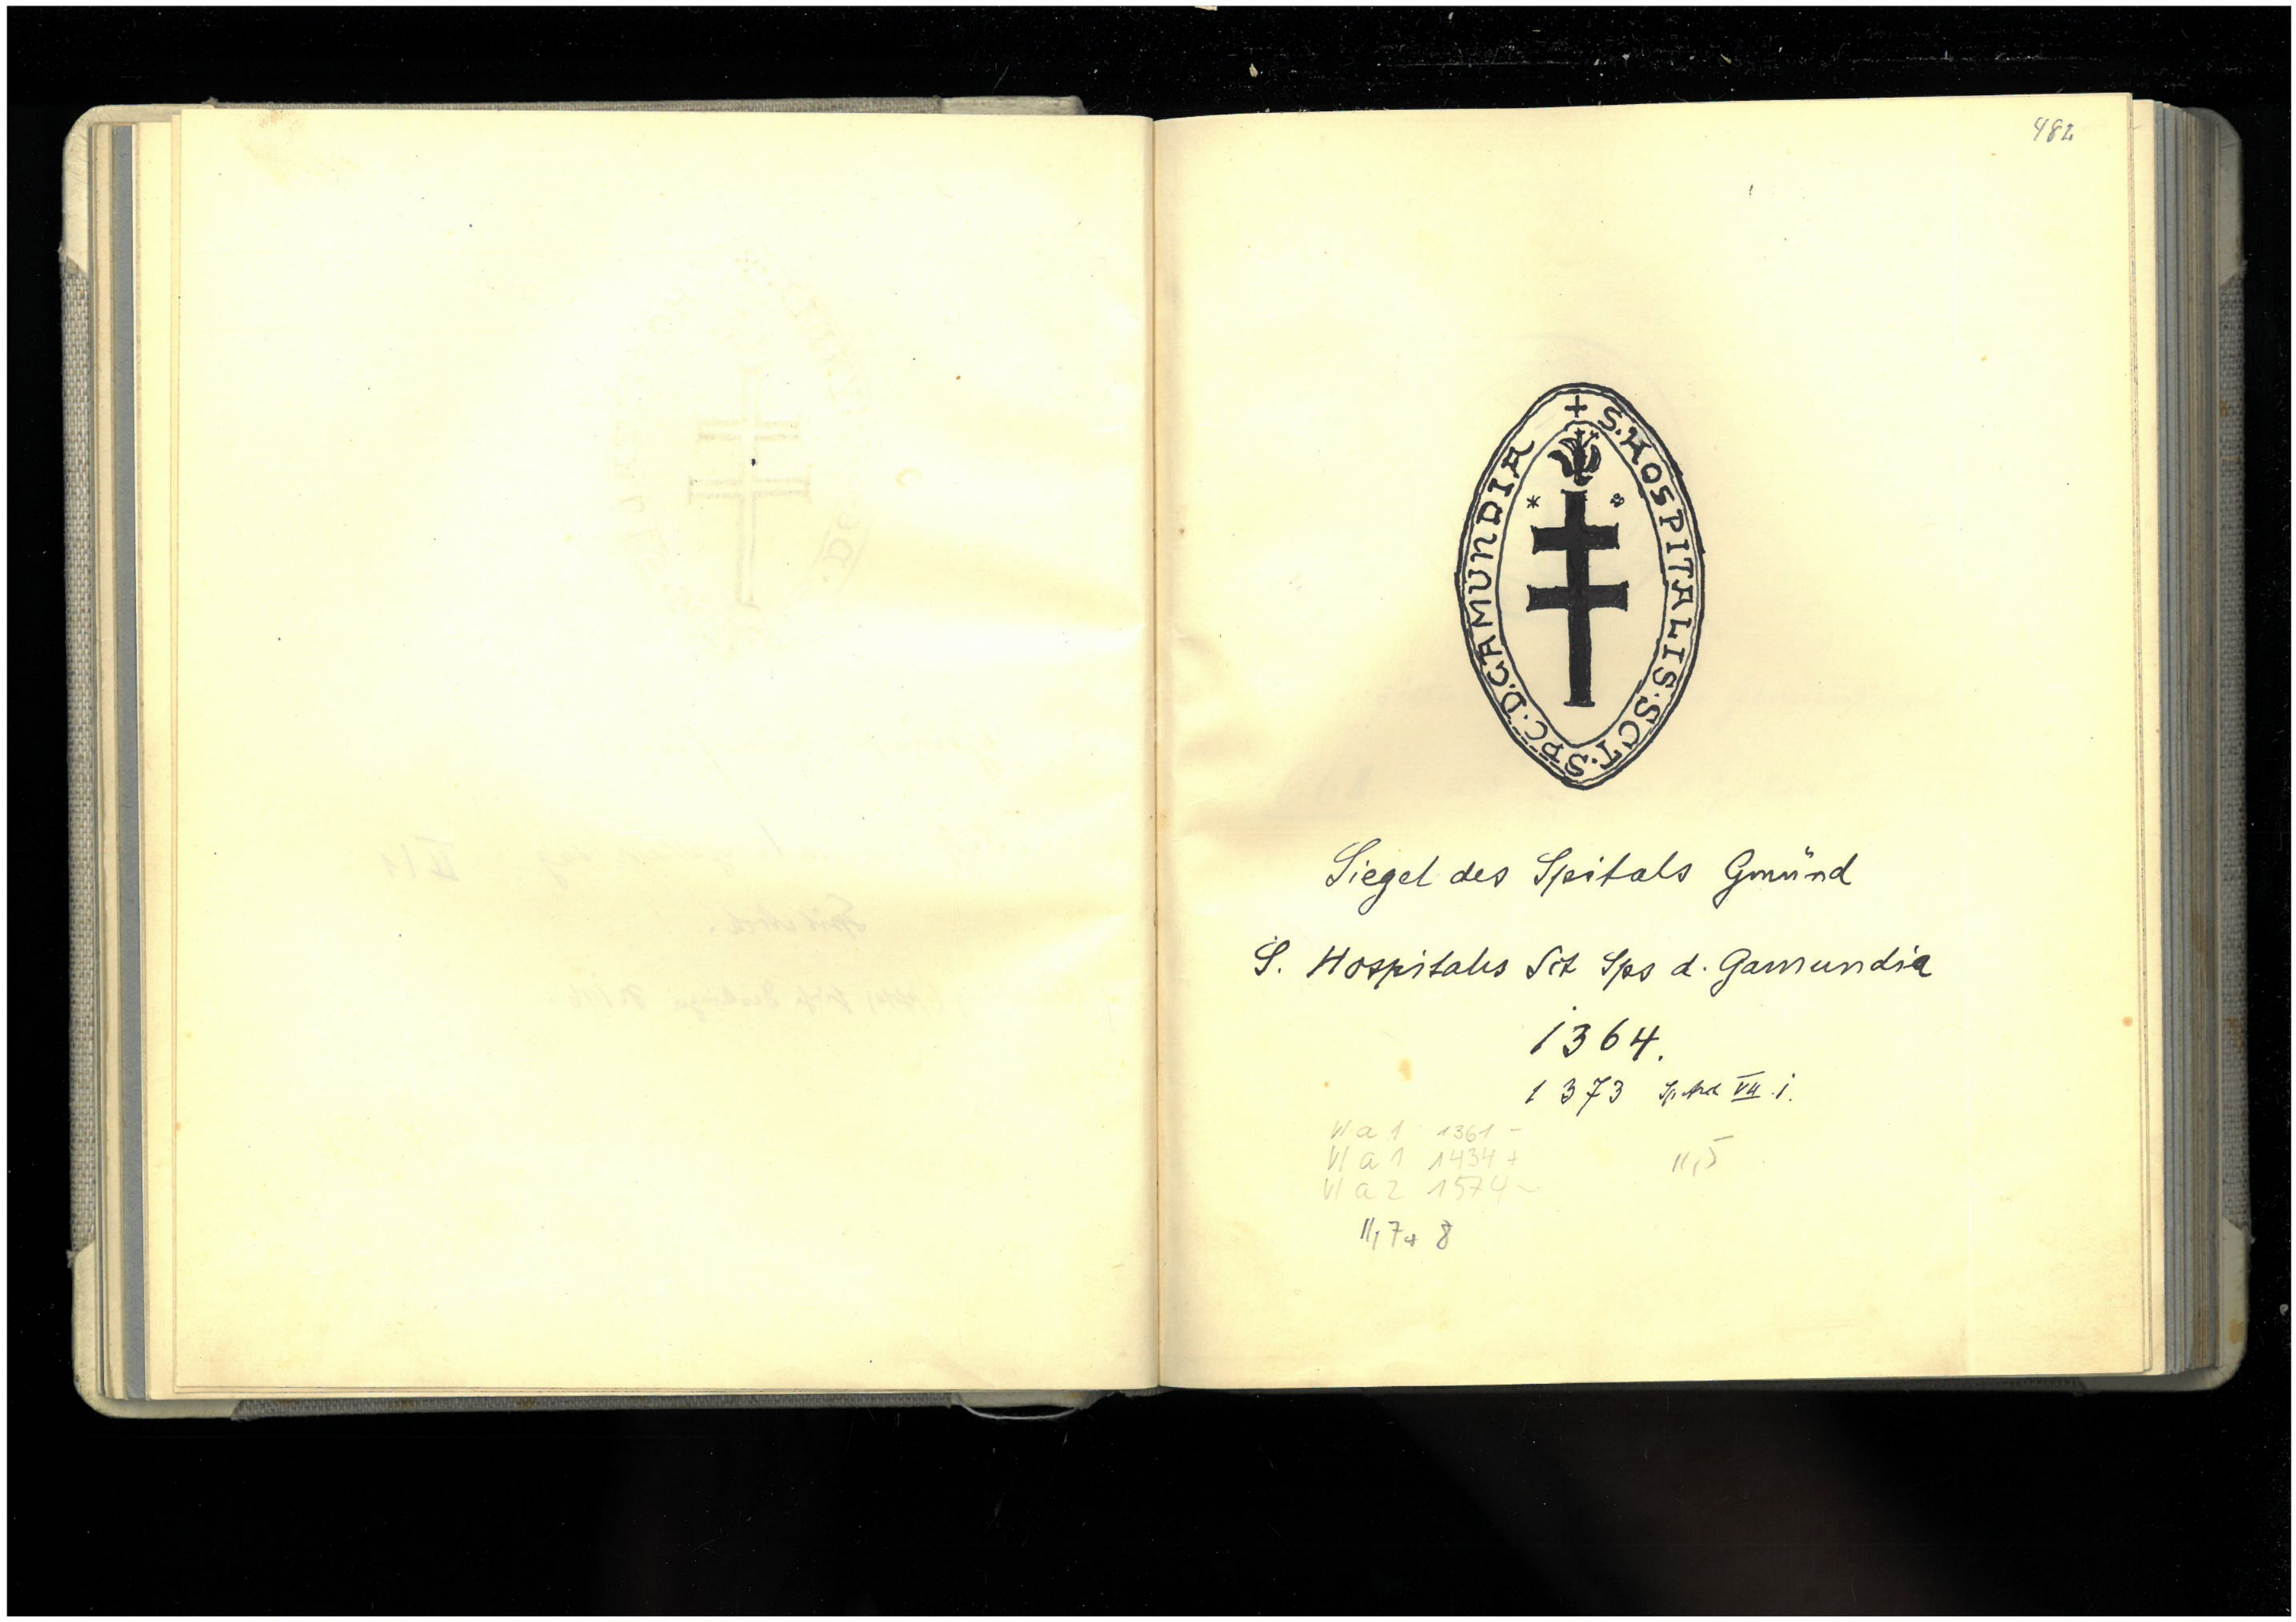 482
+ S. HOSPITALIS. SCT. SPC. D. GAMUNDIA
Siegel des Spitals Gmünd
S. Hospitalis Sct Sps d. Gamundia
1364.
1373 VII i.
VI a 1 1361 -
VI a 1 1434 +
VI a 2 1574 -
II, 5
II, 7 + 8